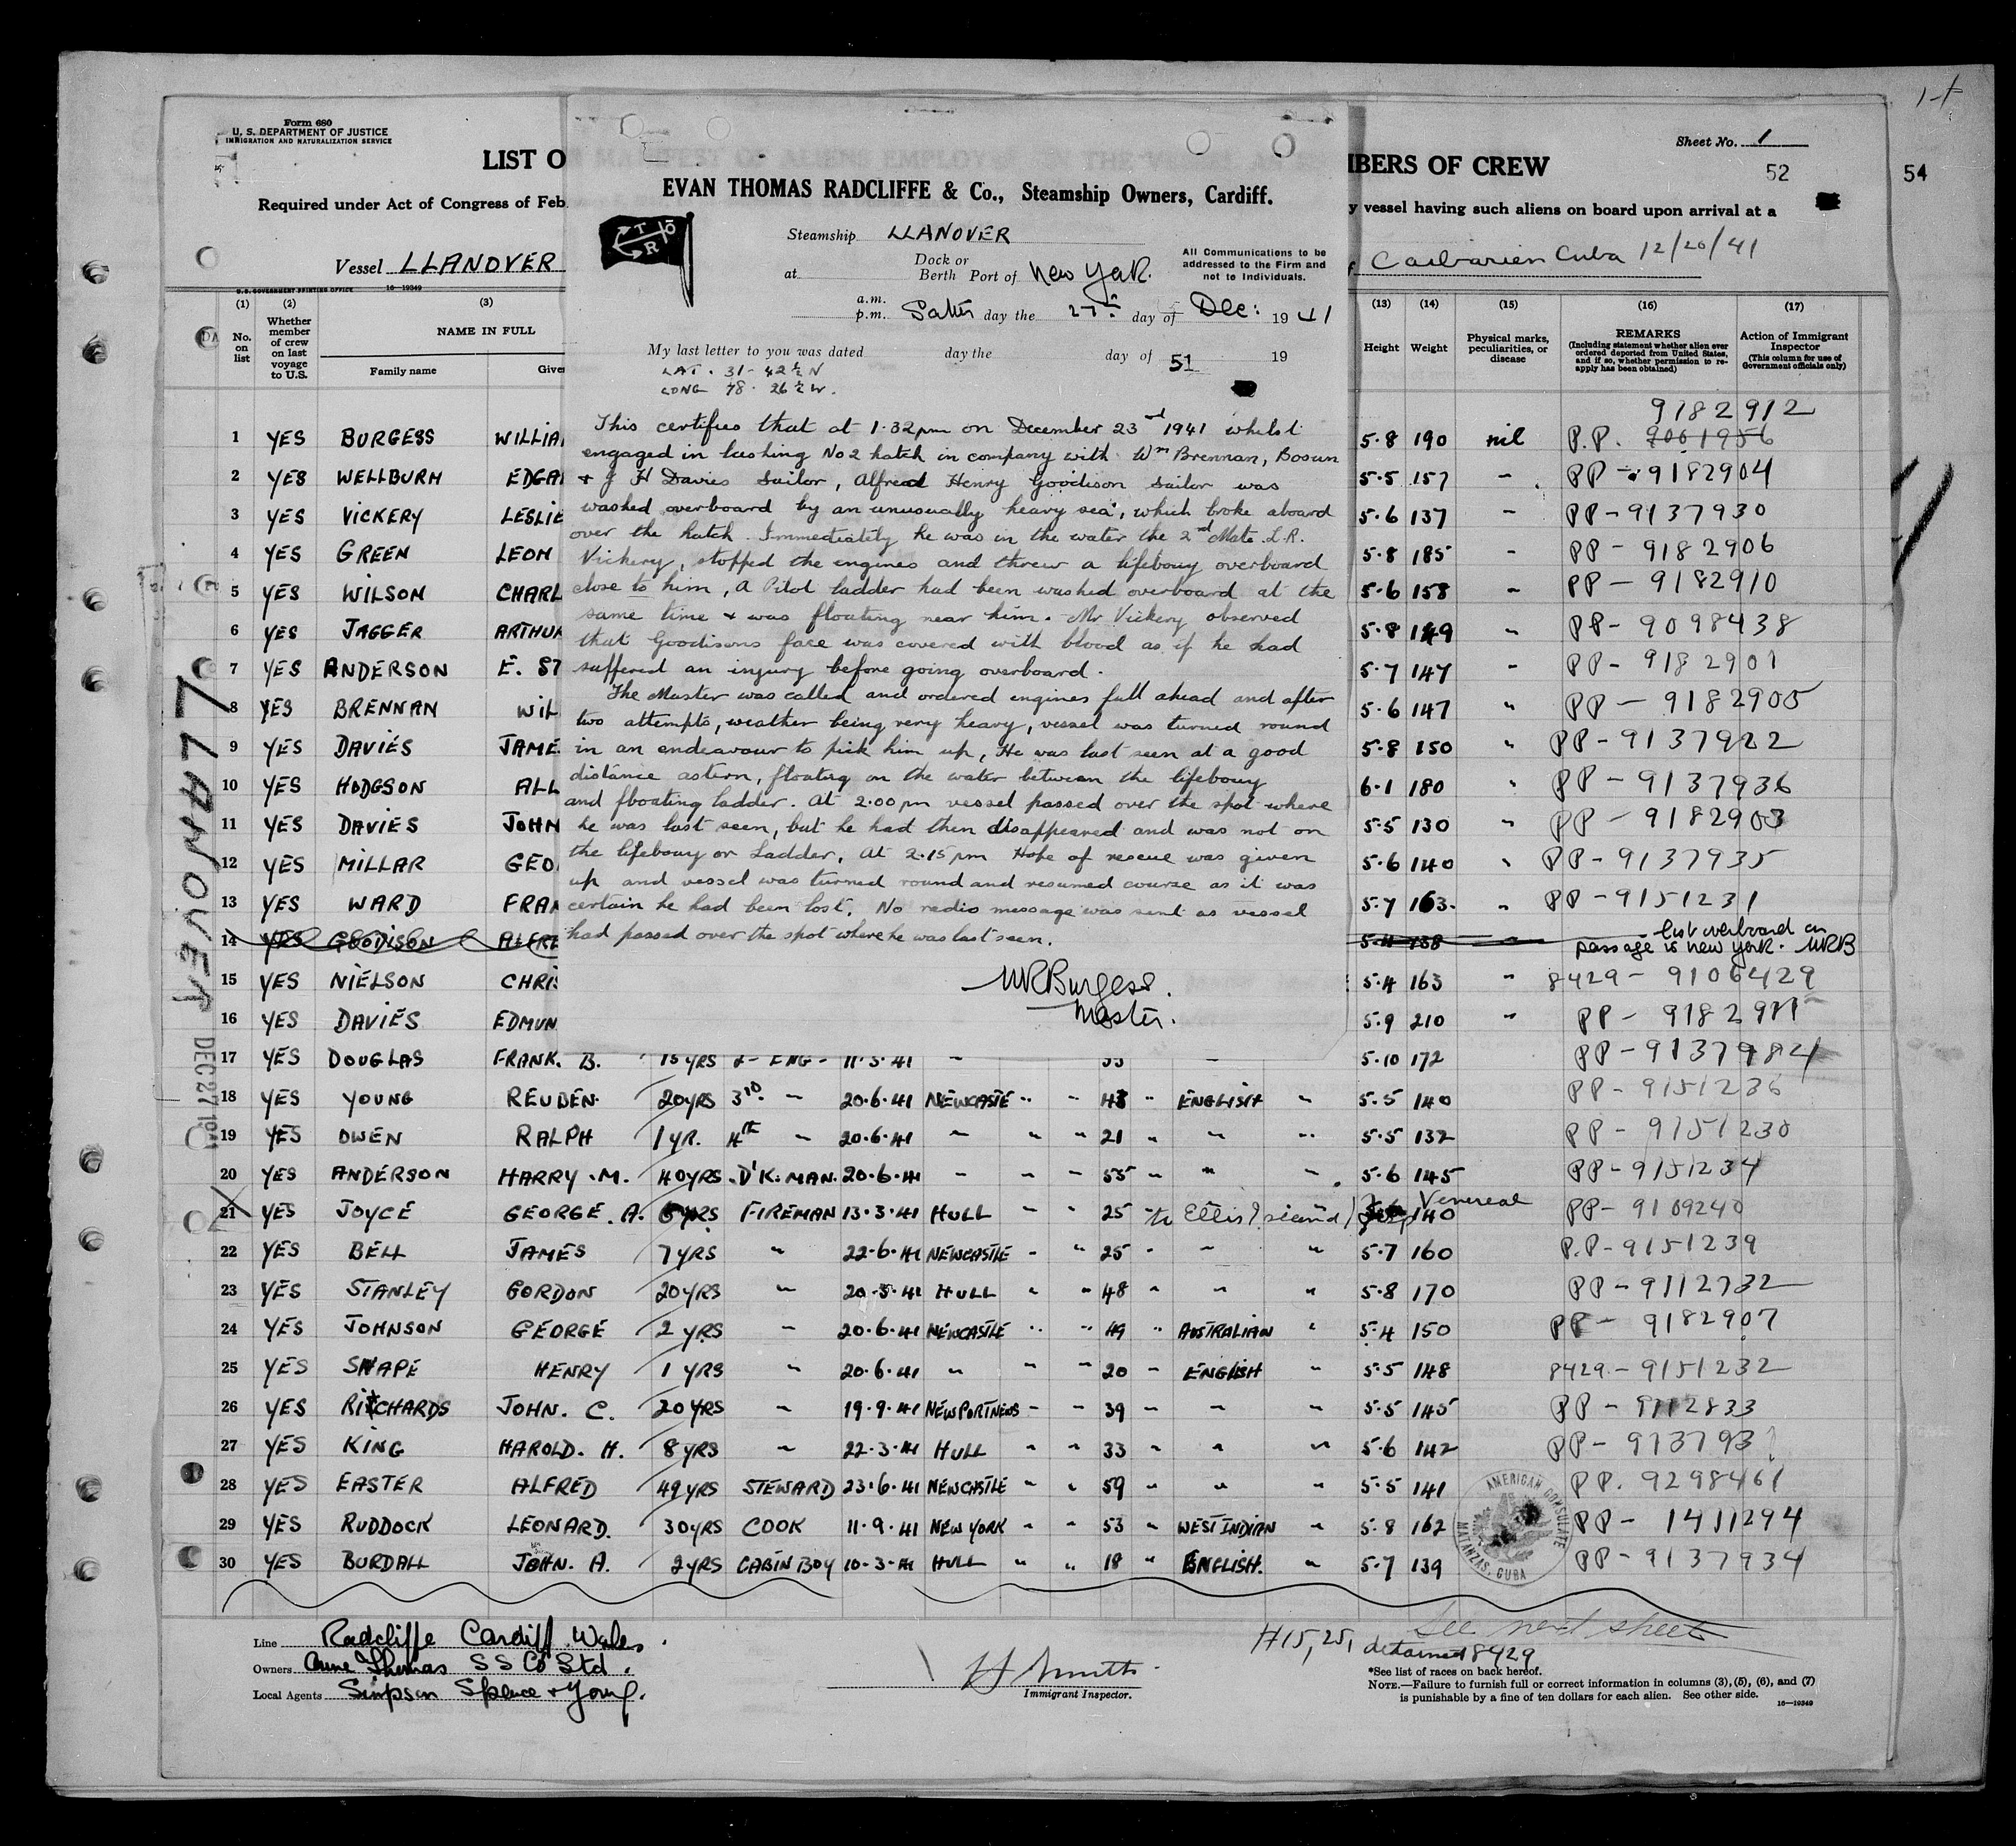 Form 680
U. S. DEPARTMENT OF JUSTICE
IMMIGRATION AND NATURALIZATION SERVICE
LIST O
MBERS OF CREW
Sheet No. 1
52
54
Required under Act of Congress of Feb
y vessel having such aliens on board upon arrival at a
Vessel LLANOVER
Caibarien Cuba 12/20/41
U. S. GOVERNMENT PRINTING OFFICE 16—19349
EVAN THOMAS RADCLIFFE & Co., Steamship Owners, Cardiff.
T R
Steamship LLANOVER
at Dock or Berth Port of New York.
All Communications to be addressed to the Firm and not to Individuals.
a.m.
p.m. Satur day the 27th day of Dec: 1941
My last letter to you was dated day the day of 19
51
LAT. 31-42½ N
LONG 78. 26½ W.
This certifies that at 1.32pm on December 23rd 1941 whilst
engaged in lashing No2 hatch in company with Wm Brennan, Bosun
+ J H Davies Sailor, Alfred Henry Goodison Sailor was
washed overboard by an unusually heavy sea, which broke aboard
over the hatch. Immediately he was in the water the 2nd Mate. L.R.
Vickery, stopped the engines and threw a lifebouy overboard
close to him, A Pilot ladder had been washed overboard at the
same time + was floating near him. Mr Vickery observed
that Goodisons face was covered with blood as if he had
suffered an injury before going overboard.
The Master was called and ordered engines full ahead and after
two attempts, weather being very heavy, vessel was turned round
in an endeavour to pick him up, He was last seen at a good
distance astern, floating on the water between the lifebouy
and floating ladder. At 2.00pm vessel passed over the spot where
he was last seen, but he had then disappeared and was not on
the lifebouy or Ladder, At 2.15pm Hope of rescue was given
up and vessel was turned round and resumed course as it was
certain he had been lost. No radio message was sent as vessel
had passed over the spot where he was last seen.
WRBurgess.
Master.
(1) (2) (3) (13) (14) (15) (16) (17)
No. on list
Whether member of crew on last voyage to U.S.
NAME IN FULL
Family name Give
Height Weight
Physical marks, peculiarities, or disease
REMARKS
(Including statement whether alien ever ordered deported from United States, and if so, whether permission to reapply has been obtained)
Action of Immigrant Inspector
(This column for use of Government officials only)
9182912
1 YES BURGESS WILLIA 5.8 190 nil P.P. 9061956
2 YES WELLBURN EDGA 5.5 157 " PP-9182904
3 YES VICKERY LESLIE 5.6 137 " PP-9137930
4 YES GREEN LEON 5.8 185 " PP-9182906
5 YES WILSON CHARL 5.6 158 " PP-9182910
6 YES JAGGER ARTHUR 5.8 149 " PP-9098438
7 YES ANDERSON E. ST 5.7 147 " PP-9182901
8 YES BRENNAN WIL 5.6 147 " PP-9182905
9 YES DAVIES JAME 5.8 150 " PP-9137922
10 YES HODGSON ALL 6.1 180 " PP-9137936
11 YES DAVIES JOHN 5.5 130 " PP-9182903
12 YES MILLAR GEO 5.6 140 " PP-9137935
13 YES WARD FRAN 5.7 163. " PP-9151231
14 YES GOODISON ALFRE 5.11 138 " lost overboard on passage to new york. WRB
15 YES NIELSON CHRIS 5.4 163 " 8429-9106429
16 YES DAVIES EDMUN 5.9 210 " PP-9182911
17 YES DOUGLAS FRANK. B. 15 YRS 2- ENG- 11.3.41 " 33 " 5.10 172 PP-9137984
18 YES YOUNG REUBEN 20YRS 3RD " 20.6.41 NEWCASTLE " " 43 " ENGLISH " 5.5 140 PP-9151236
19 YES OWEN RALPH 1YR. 4TH " 20.6.41 " " " 21 " " " 5.5 132 PP-9151230
20 YES ANDERSON HARRY .M. 40YRS D'K. MAN. 20.6.41 " " " 55 " " " 5.6 145 PP-9151234
21 YES JOYCE GEORGE. A. 6YRS FIREMAN 13.3.41 HULL " " 25 " to Ellis Island Venereal 140 PP-9109240
22 YES BELL JAMES 7YRS " 22-6.41 NEWCASTLE " " 25 " " " 5.7 160 P.P-9151239
23 YES STANLEY GORDON 20YRS " 20.3.41 HULL " " 48 " " " 5.8 170 PP-9112732
24 YES JOHNSON GEORGE 2 YRS " 20.6.41 NEWCASTLE " " 49 " AUSTRALIAN " 5.4 150 PP-9182907
25 YES SNAPE HENRY 1 YRS " 20.6.41 " " " 20 " ENGLISH " 5.5 148 8429-9151232
26 YES RITCHARDS JOHN. C. 20YRS " 19.9.41 NEWPORTNEWS " " 39 " " " 5.5 145 PP-9112833
27 YES KING HAROLD. H. 8YRS " 22.3.41 HULL " " 33 " " " 5.6 142 PP-913793
28 YES EASTER ALFRED 49YRS STEWARD 23.6.41 NEWCASTLE " " 59 " " " 5.5 141 PP. 9298461
29 YES RUDDOCK LEONARD. 30YRS COOK 11.9.41 NEW YORK " " 53 " WEST INDIAN " 5.8 162 PP-1411294
30 YES BURDALL JOHN. A. 2YRS CABIN BOY 10-3.41 HULL " " 18 " ENGLISH. " 5.7 139 PP-9137934
LLANOVER
DEC 27 1941
AMERICAN CONSULATE
MATANZAS, CUBA
Line Radcliffe Cardiff Wales.
Owners Thomas S S Co Ltd.
Local Agents Simpson Spence & Young.
Immigrant Inspector.
See next sheet
#15, 25, detained 8429
*See list of races on back hereof.
NOTE.—Failure to furnish full or correct information in columns (3), (5), (6), and (7)
is punishable by a fine of ten dollars for each alien. See other side.
16—19349